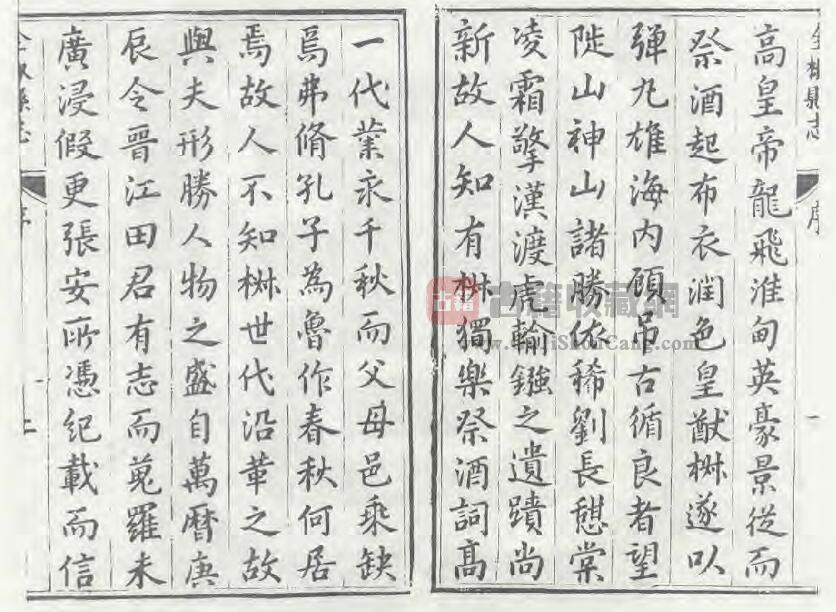 全椒縣志 序 一
高皇帝龍飛淮甸英豪景從而
祭酒起布衣潤色皇猷椒遂以
彈丸雄海内顧吊古循良者望
陡山神山諸勝依稀劉長憩棠
凌霜擎漢渡虎輸鏹之遺蹟尚
新故人知有椒獨樂祭酒詞高
一代業永千秋而父母邑乘缺
焉弗脩孔子為魯作春秋何居
焉故人不知椒世代沿革之故
與夫形勝人物之盛自萬曆庚
辰令晉江田君有志而蒐羅未
廣浸假更張安所憑紀載而信
古籍
古籍收藏網